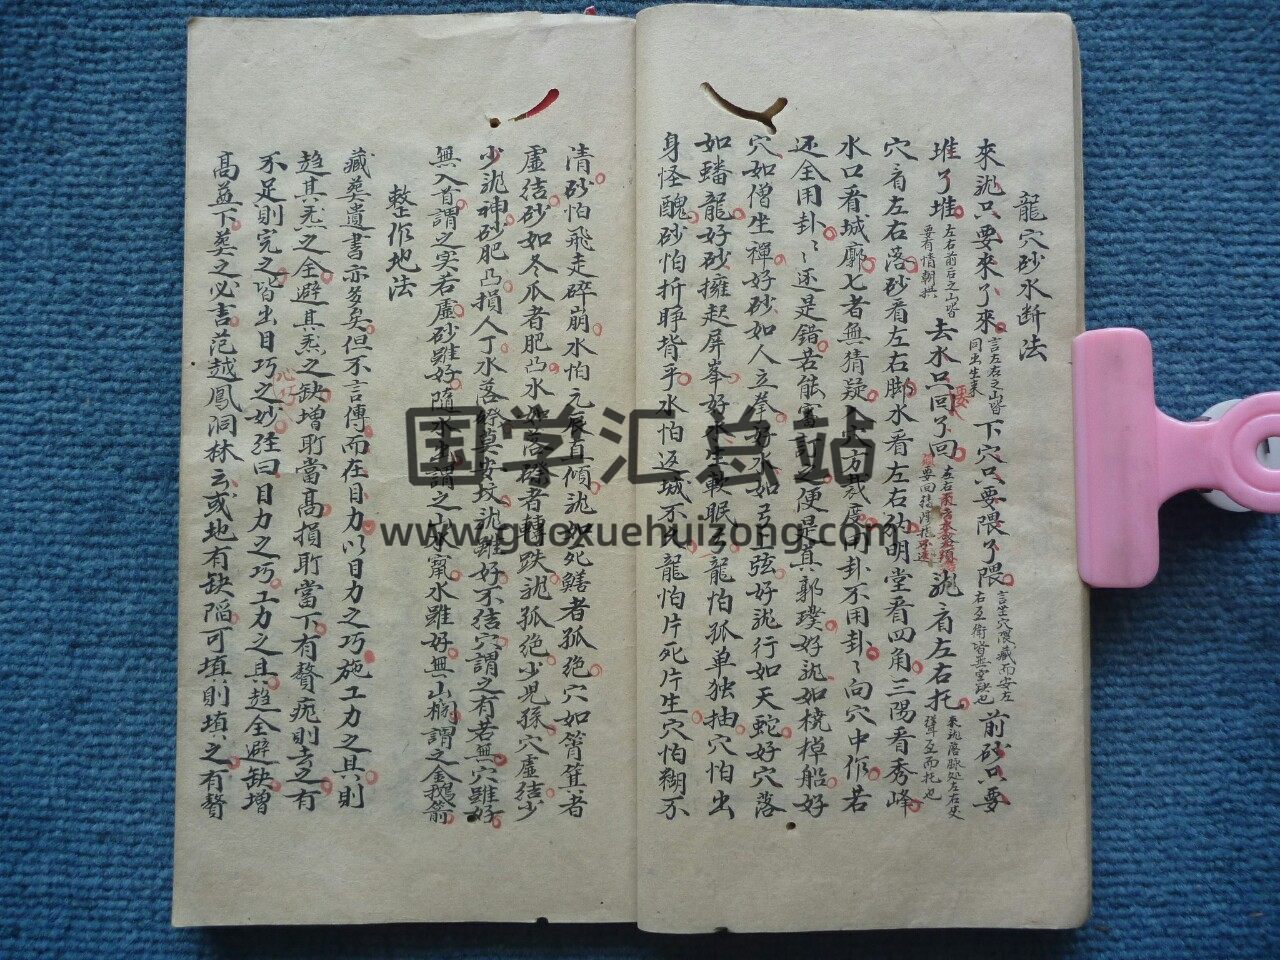 龍穴砂水断法
來泷只要來了來言左右之山皆同出生來下穴只要隈了隈言坐穴隈藏而安左右互衛皆無空缺也前砂只要
堆了堆左右前后之山皆要有情朝拱去水只要回了回左右泷有左右托來泷落脉处左右
穴有左右落砂看左右脚水看左右的明堂看四角三陽看秀峰
水口看城廓七者無猜疑穴方裁度問卦不用卦〻向穴中作若
还全用卦〻还是錯若能審訂之便是真郭璞好泷如梹棹船好
穴如僧坐禪好砂如人立拳好水如弓上弦好泷行如天蛇好穴落
如蟠龍好砂擁起屏峯好水軟眠弓龍怕孤单独抽穴怕出
身怪醜砂怕折睜揹乎水怕返城不死龍怕片死片生穴怕糊不
清砂怕飛走碎崩水怕元辰直傾泷如死鱔者孤绝穴如筲箕者
虛结砂如冬瓜者肥凸水者轉跌泷孤绝少児孫穴虛结少
少泷神砂肥凸損人丁水落莫安坟泷雖好不结穴謂之有若無穴雖好
無入首謂之实若虛砂雖好隨水謂之水窮水雖好無山欄謂之金鵝箭
整作地法
藏葬遺書亦多矣但不言傳而在目力以目力之巧施工力之具則
趋其炁之全避其炁之缺增所當高損所當下有贅疣則去之有
不足則完之皆出目巧之妙经曰目力之巧工力之具趋全避缺增
心巧
高益下葬之必吉范越鳳洞林云或地有缺陷可填則填之有贅
国学汇总站
www.guoxuehuizong.com